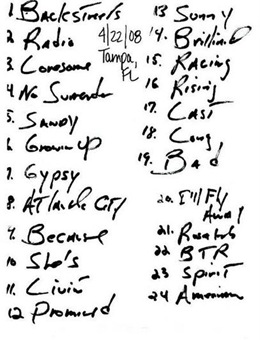 1. Backstreets
2 Radio
3. Lonesome
4 No Surrender
5. Sandy
6. Growin Up
7. Gypsy
8. Atlantic City
9. Because
10 She's
11. Livin
12 Promised
4/22/08
Tampa,
FL
13 Sunny
14. Brillind
15. Racing
16 Rising
17. Last
18. Long
19. Bad
20. I'll Fly
Away
21. Rosalita
22 BTR
23 Spirit
24 American